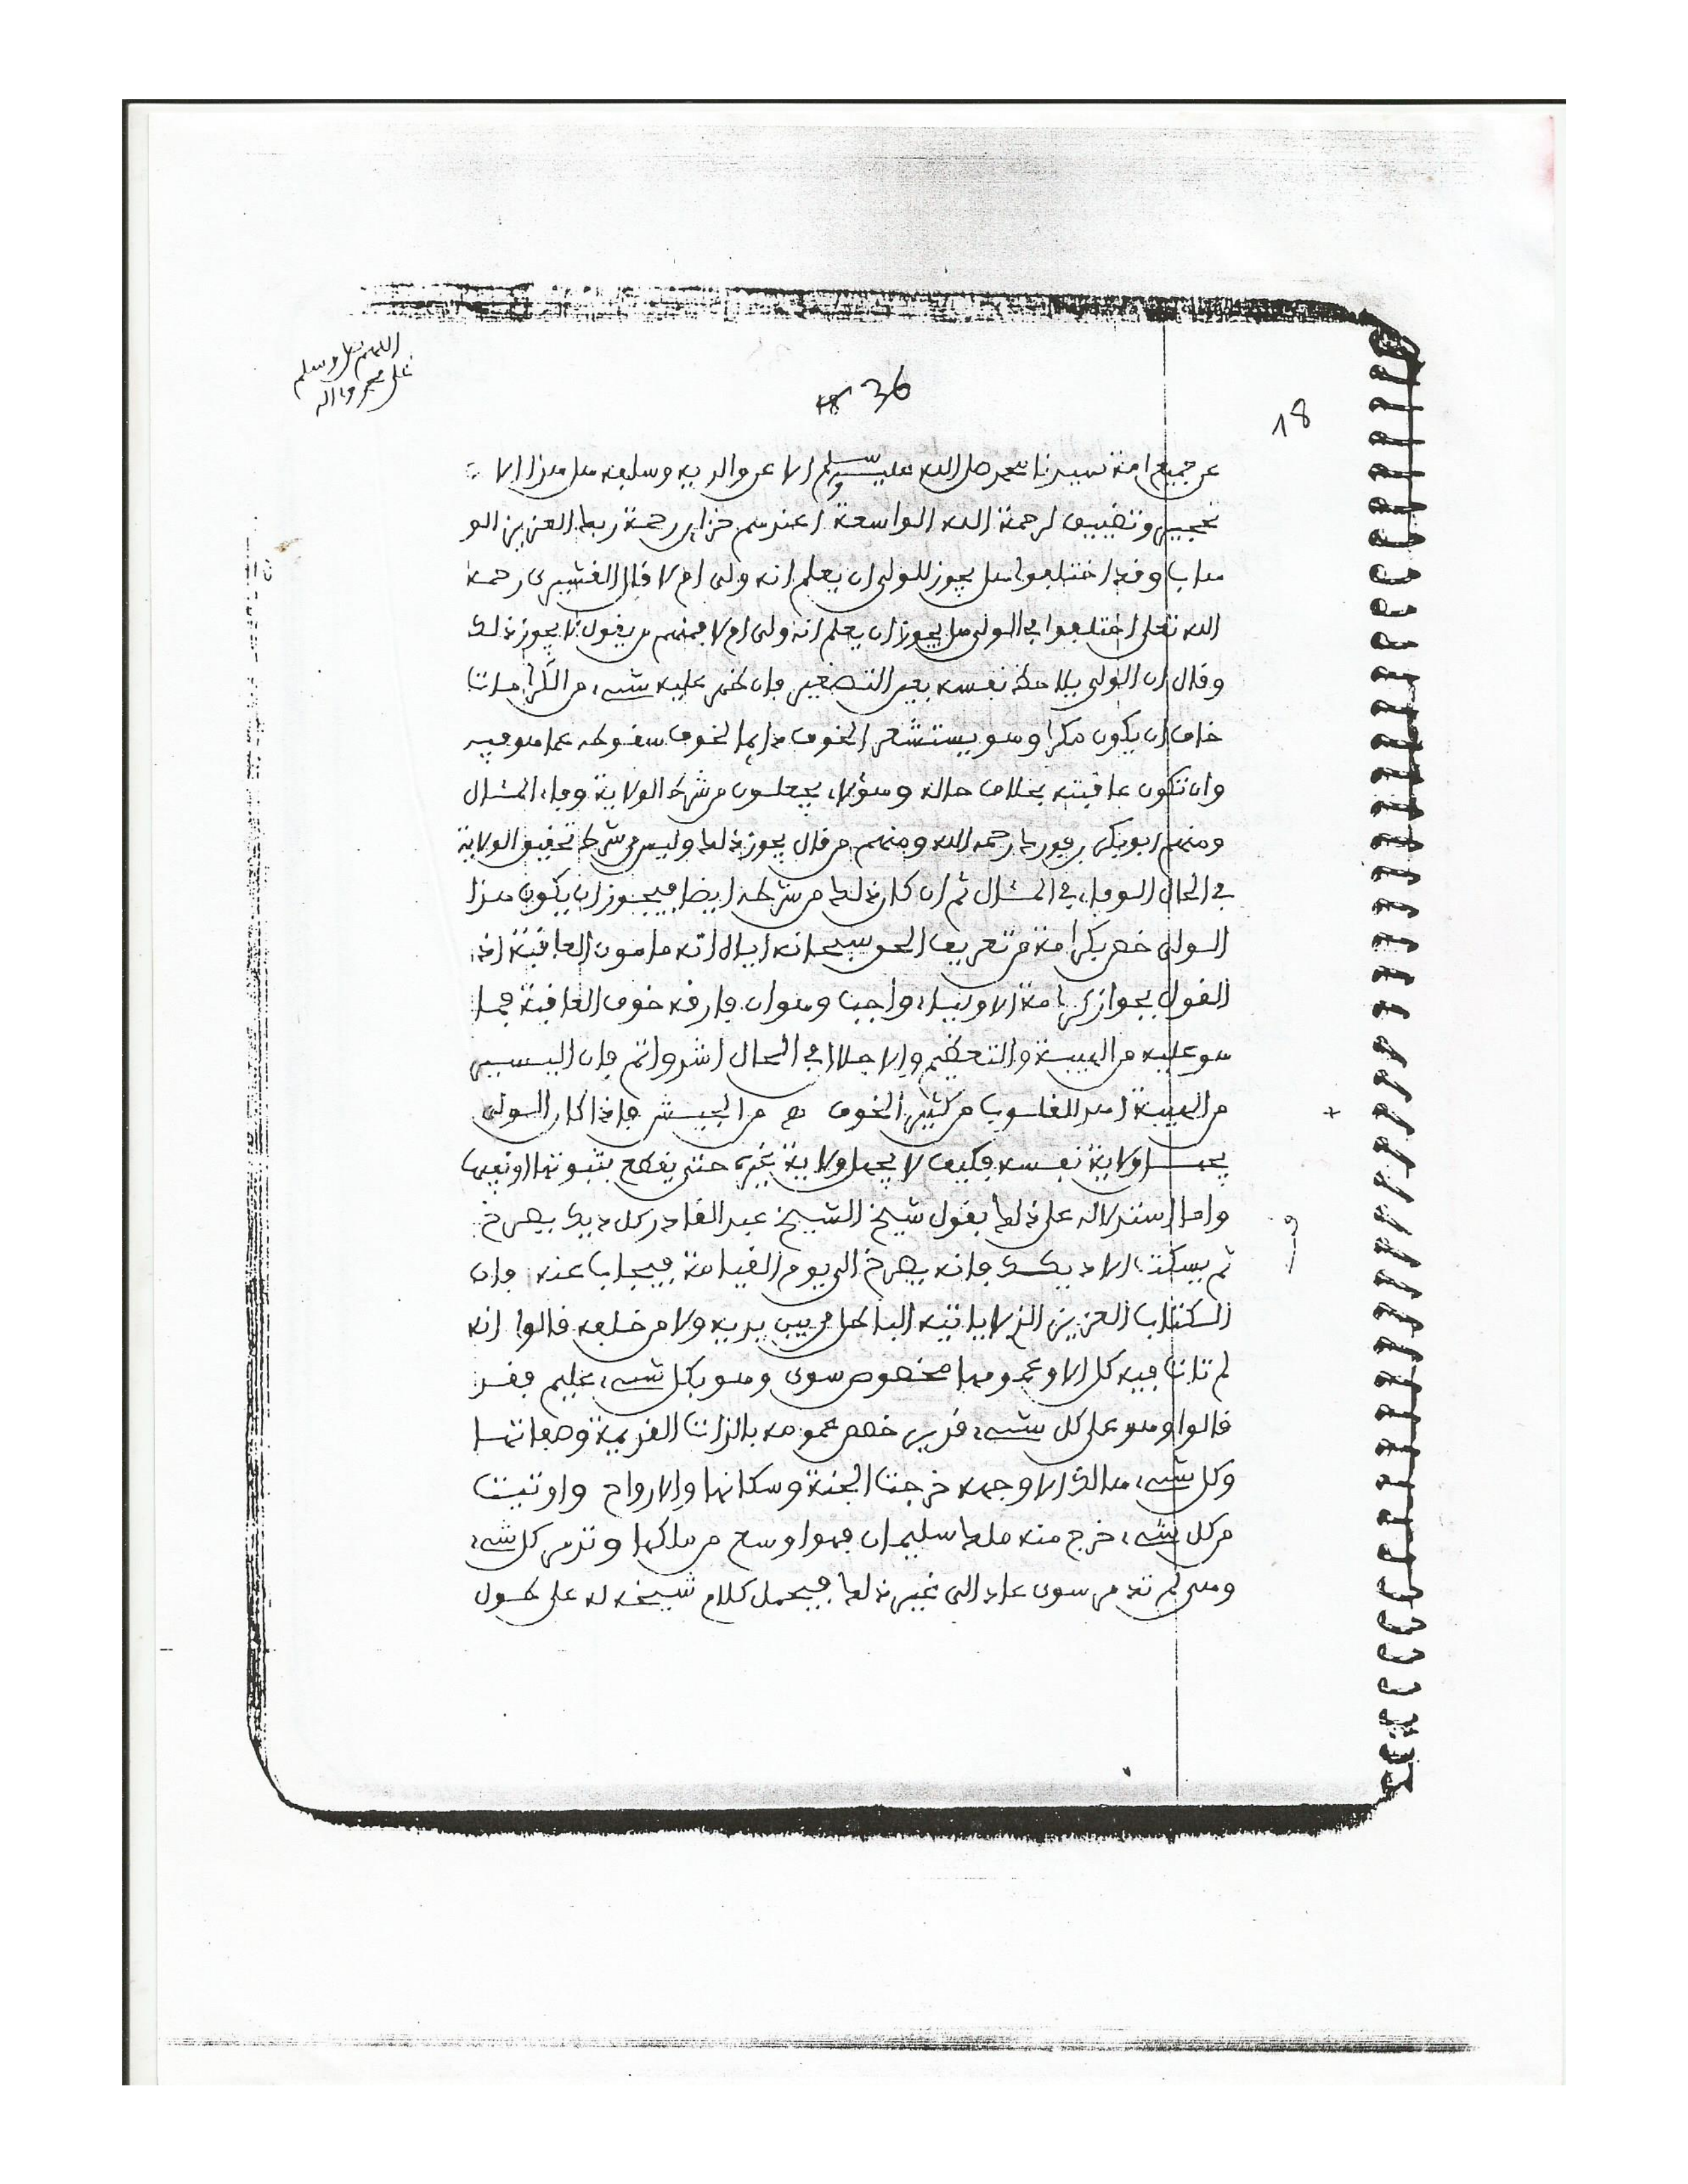 اللهم صل وسلم
على محمد وءاله
36
18
عن جميع امة سيدنا محمد صلى الله عليه وسلم الا عن والديه وسلفه هل هذا الا
تحجير وتضييق لرحمة الله الواسعة ام عندهم خزاين رحمة ربك العزيز الو
هاب وقد اختلفوا هل يجوز للولى ان يعلم انه ولى ام لا قال القشيرى رحمه
الله تعلى اختلفوا في الولى هل يجوز ان يعلم انه ولى ام لا فمنهم من يقول لا يجوز ذلك
وقال ان الولى يلاحظ نفسه بعين التصغير فان ظهر عليه شىء من الكرامات
خاف ان يكون مكرا وهو يستشعر الخوف دايما لخوف سقوطه عما هو فيه
وان تكون عاقبته بخلاف حاله وهؤلاء يجعلون من شرط الولاية وفاء المئال
ومنهم ابوبكر بن فورك رحمه الله ومنهم من قال يجوز ذلك وليس من شرط تحقيق الولاية
في الحال الوفاء في المئال ثم ان كان ذلك من شرطه ايضا فيجوز ان يكون هذا
الولى خص بكرامة من تعريف الحق سبحانه اياه انه مامون العاقبة اذ
القول بجواز كرامة الاولياء واجب وهو ان فارقه خوف العاقبة فما
هو عليه من الهيبة والتعظيم والاجلال في الحال اشد واتم فان اليسير
من الهيبة اهد القلوب من كثير الخوف من الجيش فاذا كان الولى
يجهل ولاية نفسه فكيف لا يجهل ولاية غيره حتى يقطع بثبوتها او نفيها
واما استدلاله على ذلك بقول شيخ الشيخ عبد القادر كل ديك يصرخ
ثم يسكت الا ديكك فانه يصرخ الى يوم القيامة فيجاب عنه فان
الكتاب العزيز الذى لا ياتيه الباطل من بين يديه ولا من خلفه قالوا انه
لم تات فيه كل الا وعمومها مخصوص سوى وهو بكل شىء عليم فقد
قالوا وهو على كل شىء قدير خصص عمومه بالذات القديمة وصفاتها
وكل شىء هالك الا وجهه خرجت الجنة وسكانها والارواح واوتيت
من كل شىء خرج منه ملك سليمان فهو اوسع من ملكها وتدمر كل شىء
وهى لم تدمر سوى عاد الى غير ذلك فيحمل كلام شيخه له على طول